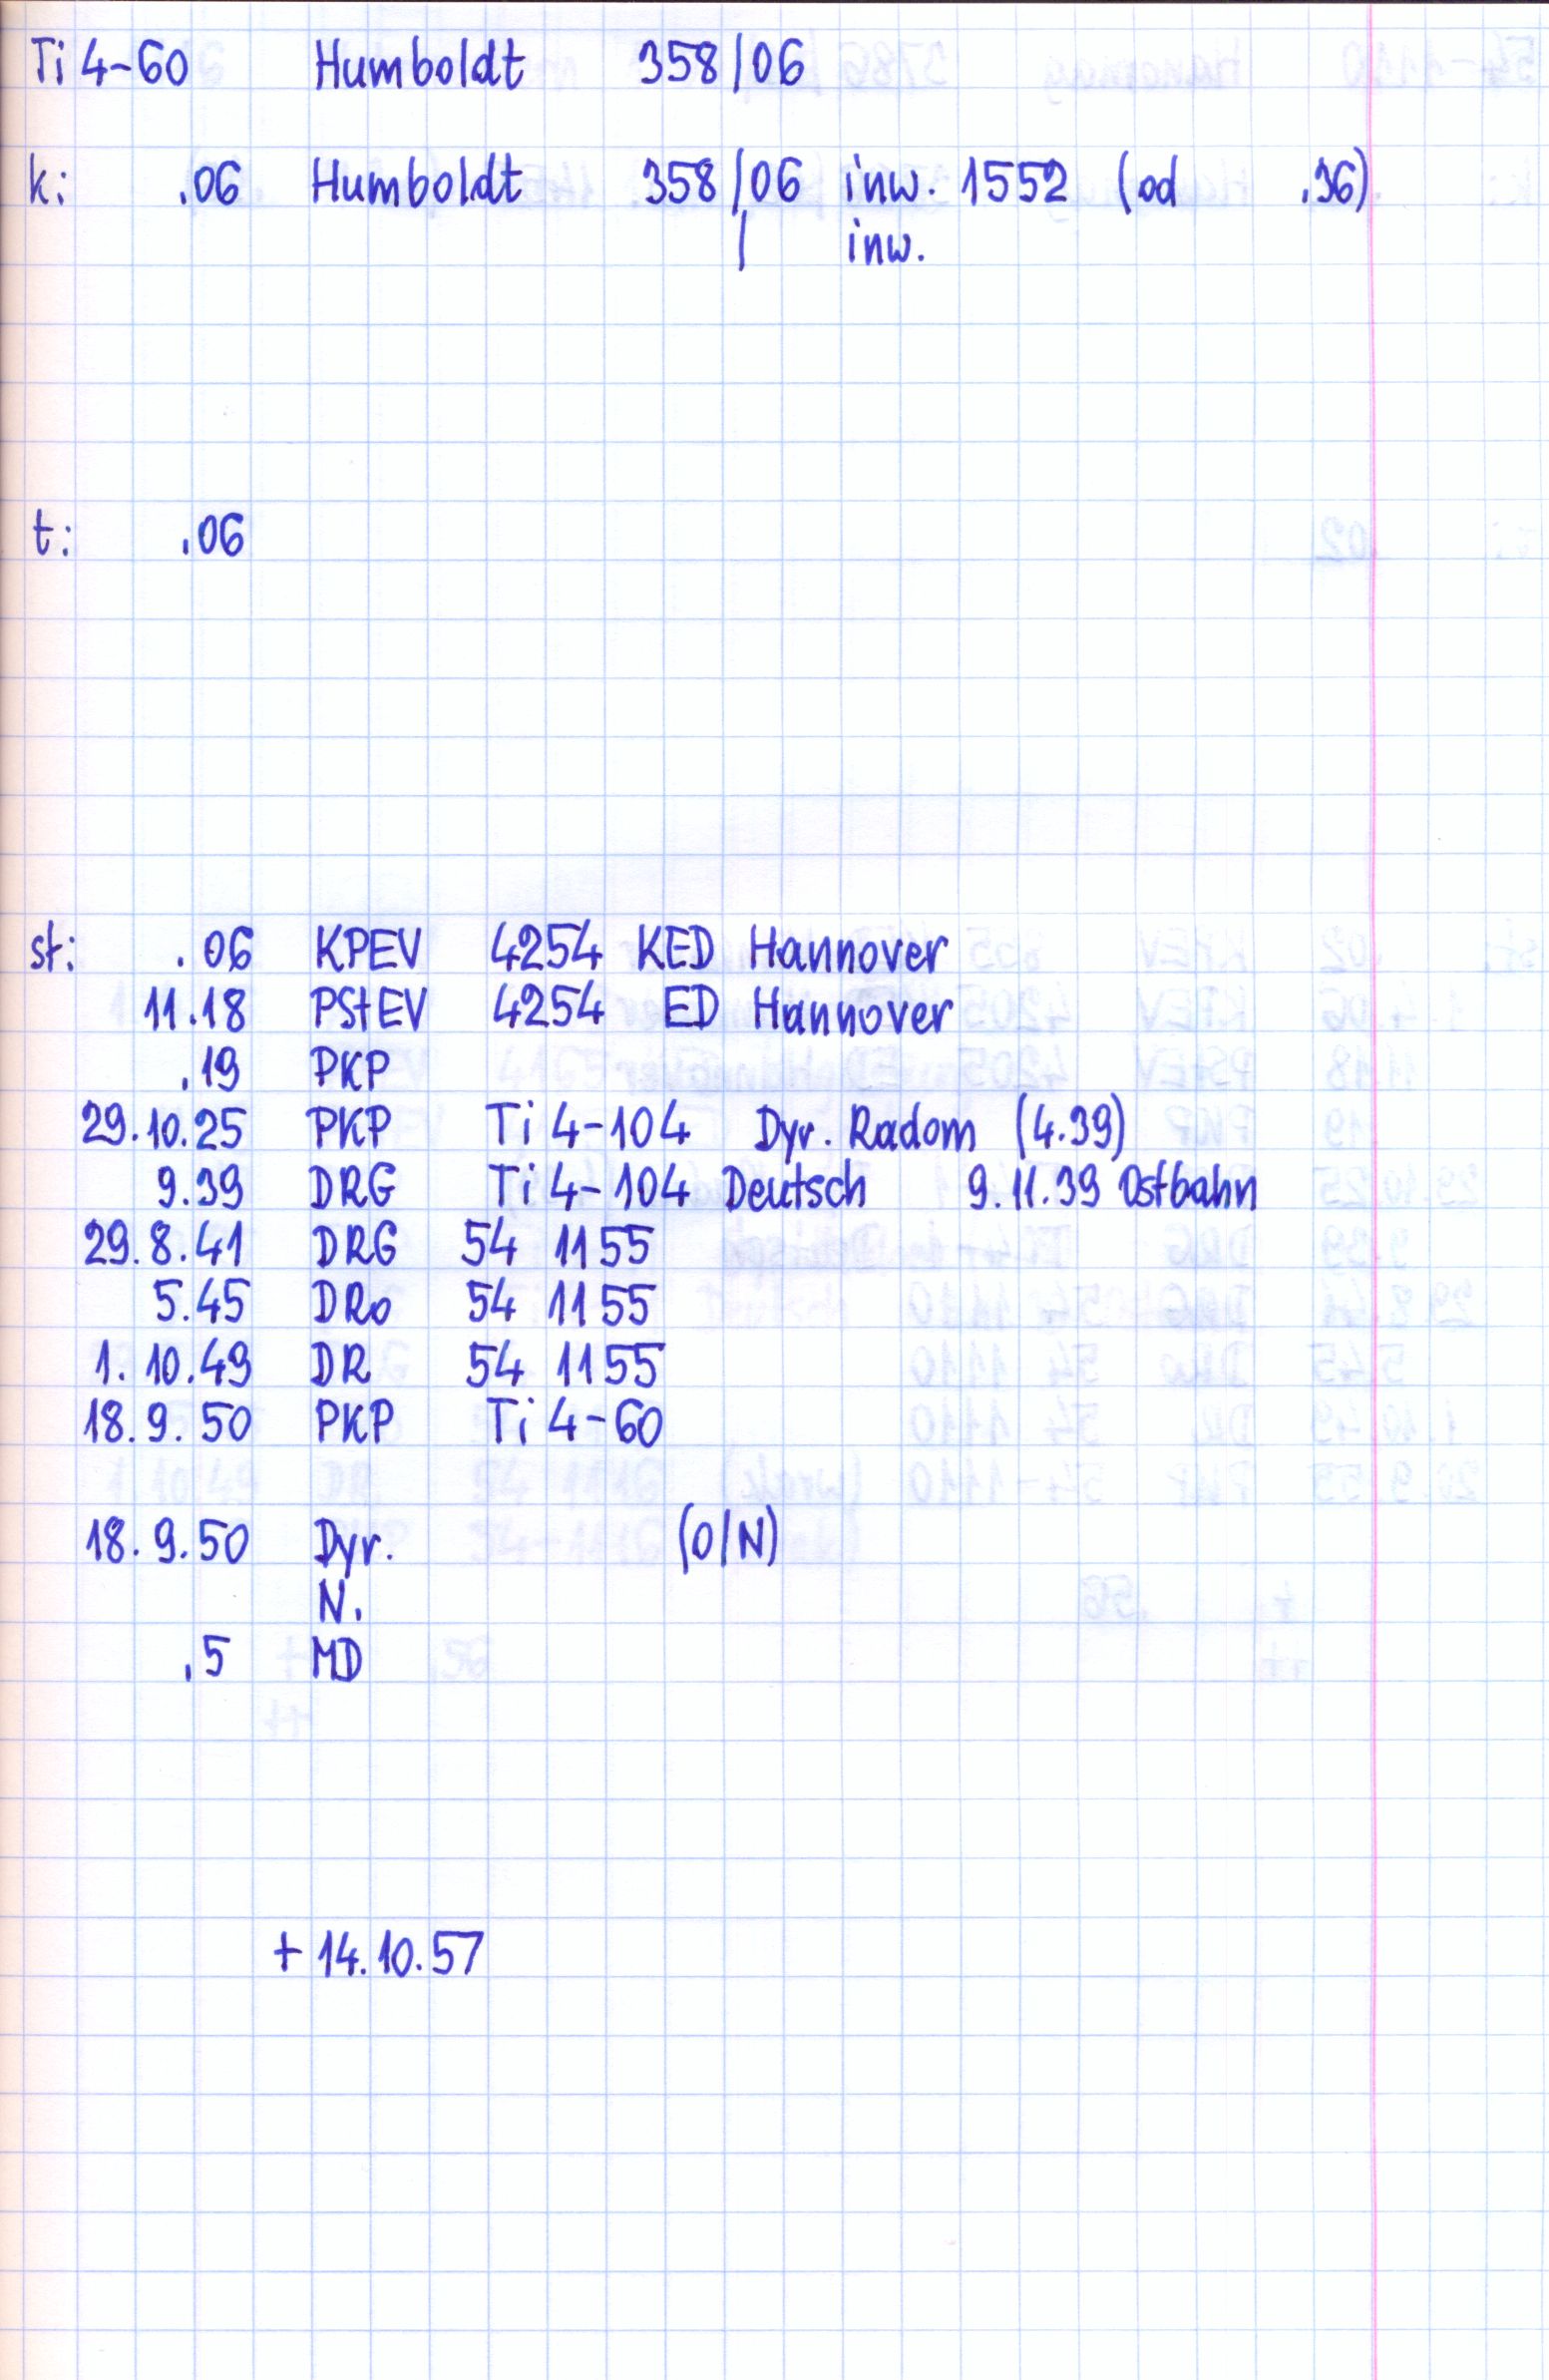 Ti 4-60 Humboldt 358/06
k: .06 Humboldt 358/06 inw. 1552 (od .36)
/ inw.
t: .06
st: .06 KPEV 4254 KED Hannover
11.18 PStEV 4254 ED Hannover
.19 PKP
29.10.25 PKP Ti 4-104 Dyr. Radom (4.39)
9.39 DRG Ti 4-104 Deutsch 9.11.39 Ostbahn
29.8.41 DRG 54 1155
5.45 DRo 54 1155
1.10.49 DR 54 1155
18.9.50 PKP Ti 4-60
18.9.50 Dyr. (O/N)
N.
.5 MD
+ 14.10.57